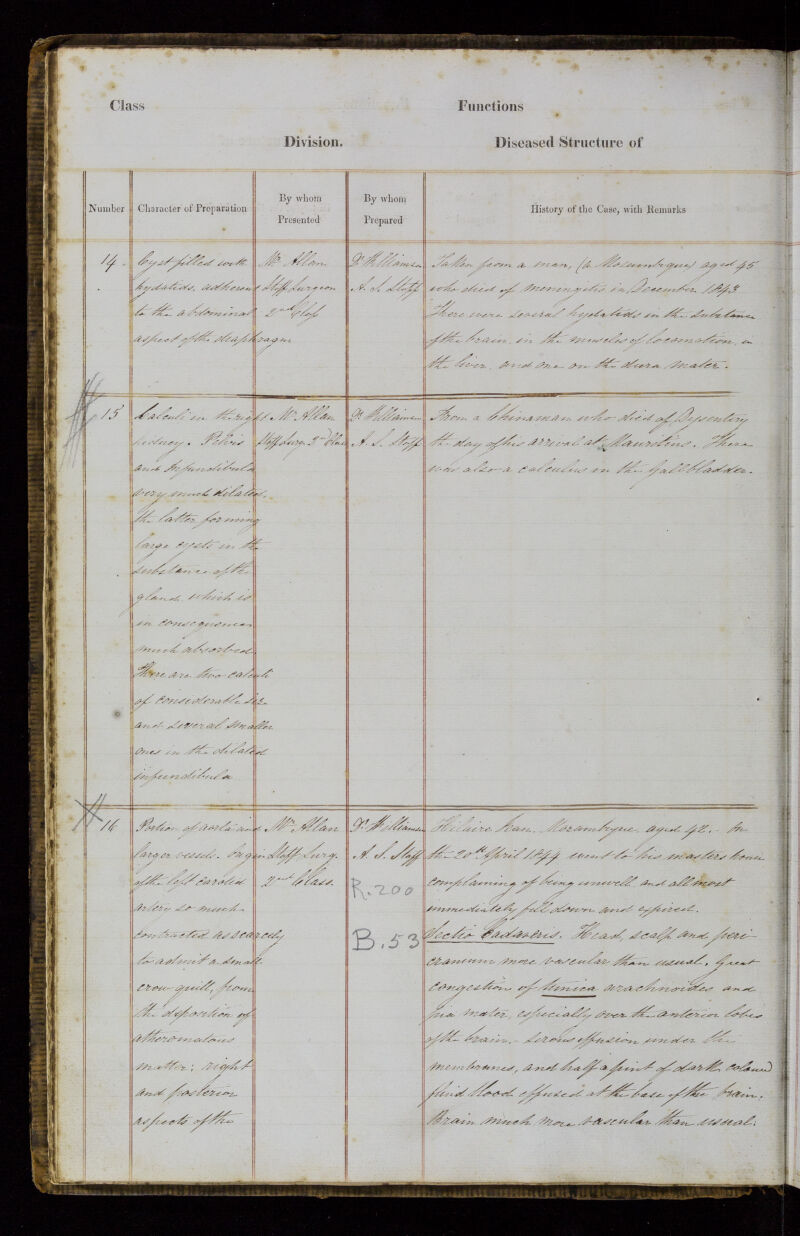 Class
Functions
Division.
Diseased Structure of
Number
Character of Preparation
By whom
Presented
By whom
Prepared
History of the Case, with Remarks
14
Cyst filled with
hydatids, adherent
to the abdominal
aspect of the diaphragm
Mr. Allan
Staff Surgeon
2nd Class
Dr. Williamson
A. S. Staff
Taken from a man, (a Mozambique) aged 45
who died of meningitis in December 1843
There were several hydatids in the substance
of the brain, in the muscles of locomotion, in
the liver, and one on the dura mater.
15
Calculi in the right
kidney. Pelvis
and Infundibula
very much dilated,
the latter forming
large cysts in the
substance of the
gland which is
in consequence
much absorbed
There are two calculi
of considerable size
and several smaller
ones in the dilated
infundibula
Mr. Allan
Staff Surg. 2nd Class
Dr. Williamson
A. S. Staff
From a Chinaman who died of Dysentery
the day of his arrival at Mauritius. There
was also a calculus in the Gallbladder.
16
Portion of aorta and
larger vessels. Origin
of the left carotid
artery so much
contracted as scarcely
to admit a small
crow quill, from
the disposition of
atheromatous
matter; right
and posterior
aspects of the
Mr. Allan
Staff Surg.
2nd Class.
Dr. Williamson
A. S. Staff
R.200
B.53
Hilaire Jean, Mozambique, aged 42. On
the 20th April 1844 went to his masters house
complaining of being unwell and all most
immediately fell down and expired.
Sectio Cadaveris. Head, scalp and peri-
cranium more vascular than usual. Great
congestion of tunica arachnoides and
pia mater, especially over the anterior lobes
of the brain, - serous effusion under the
membranes, and half a pint of dark coloured
fluid blood effused at the base of the brain.
Brain much more vascular than usual;